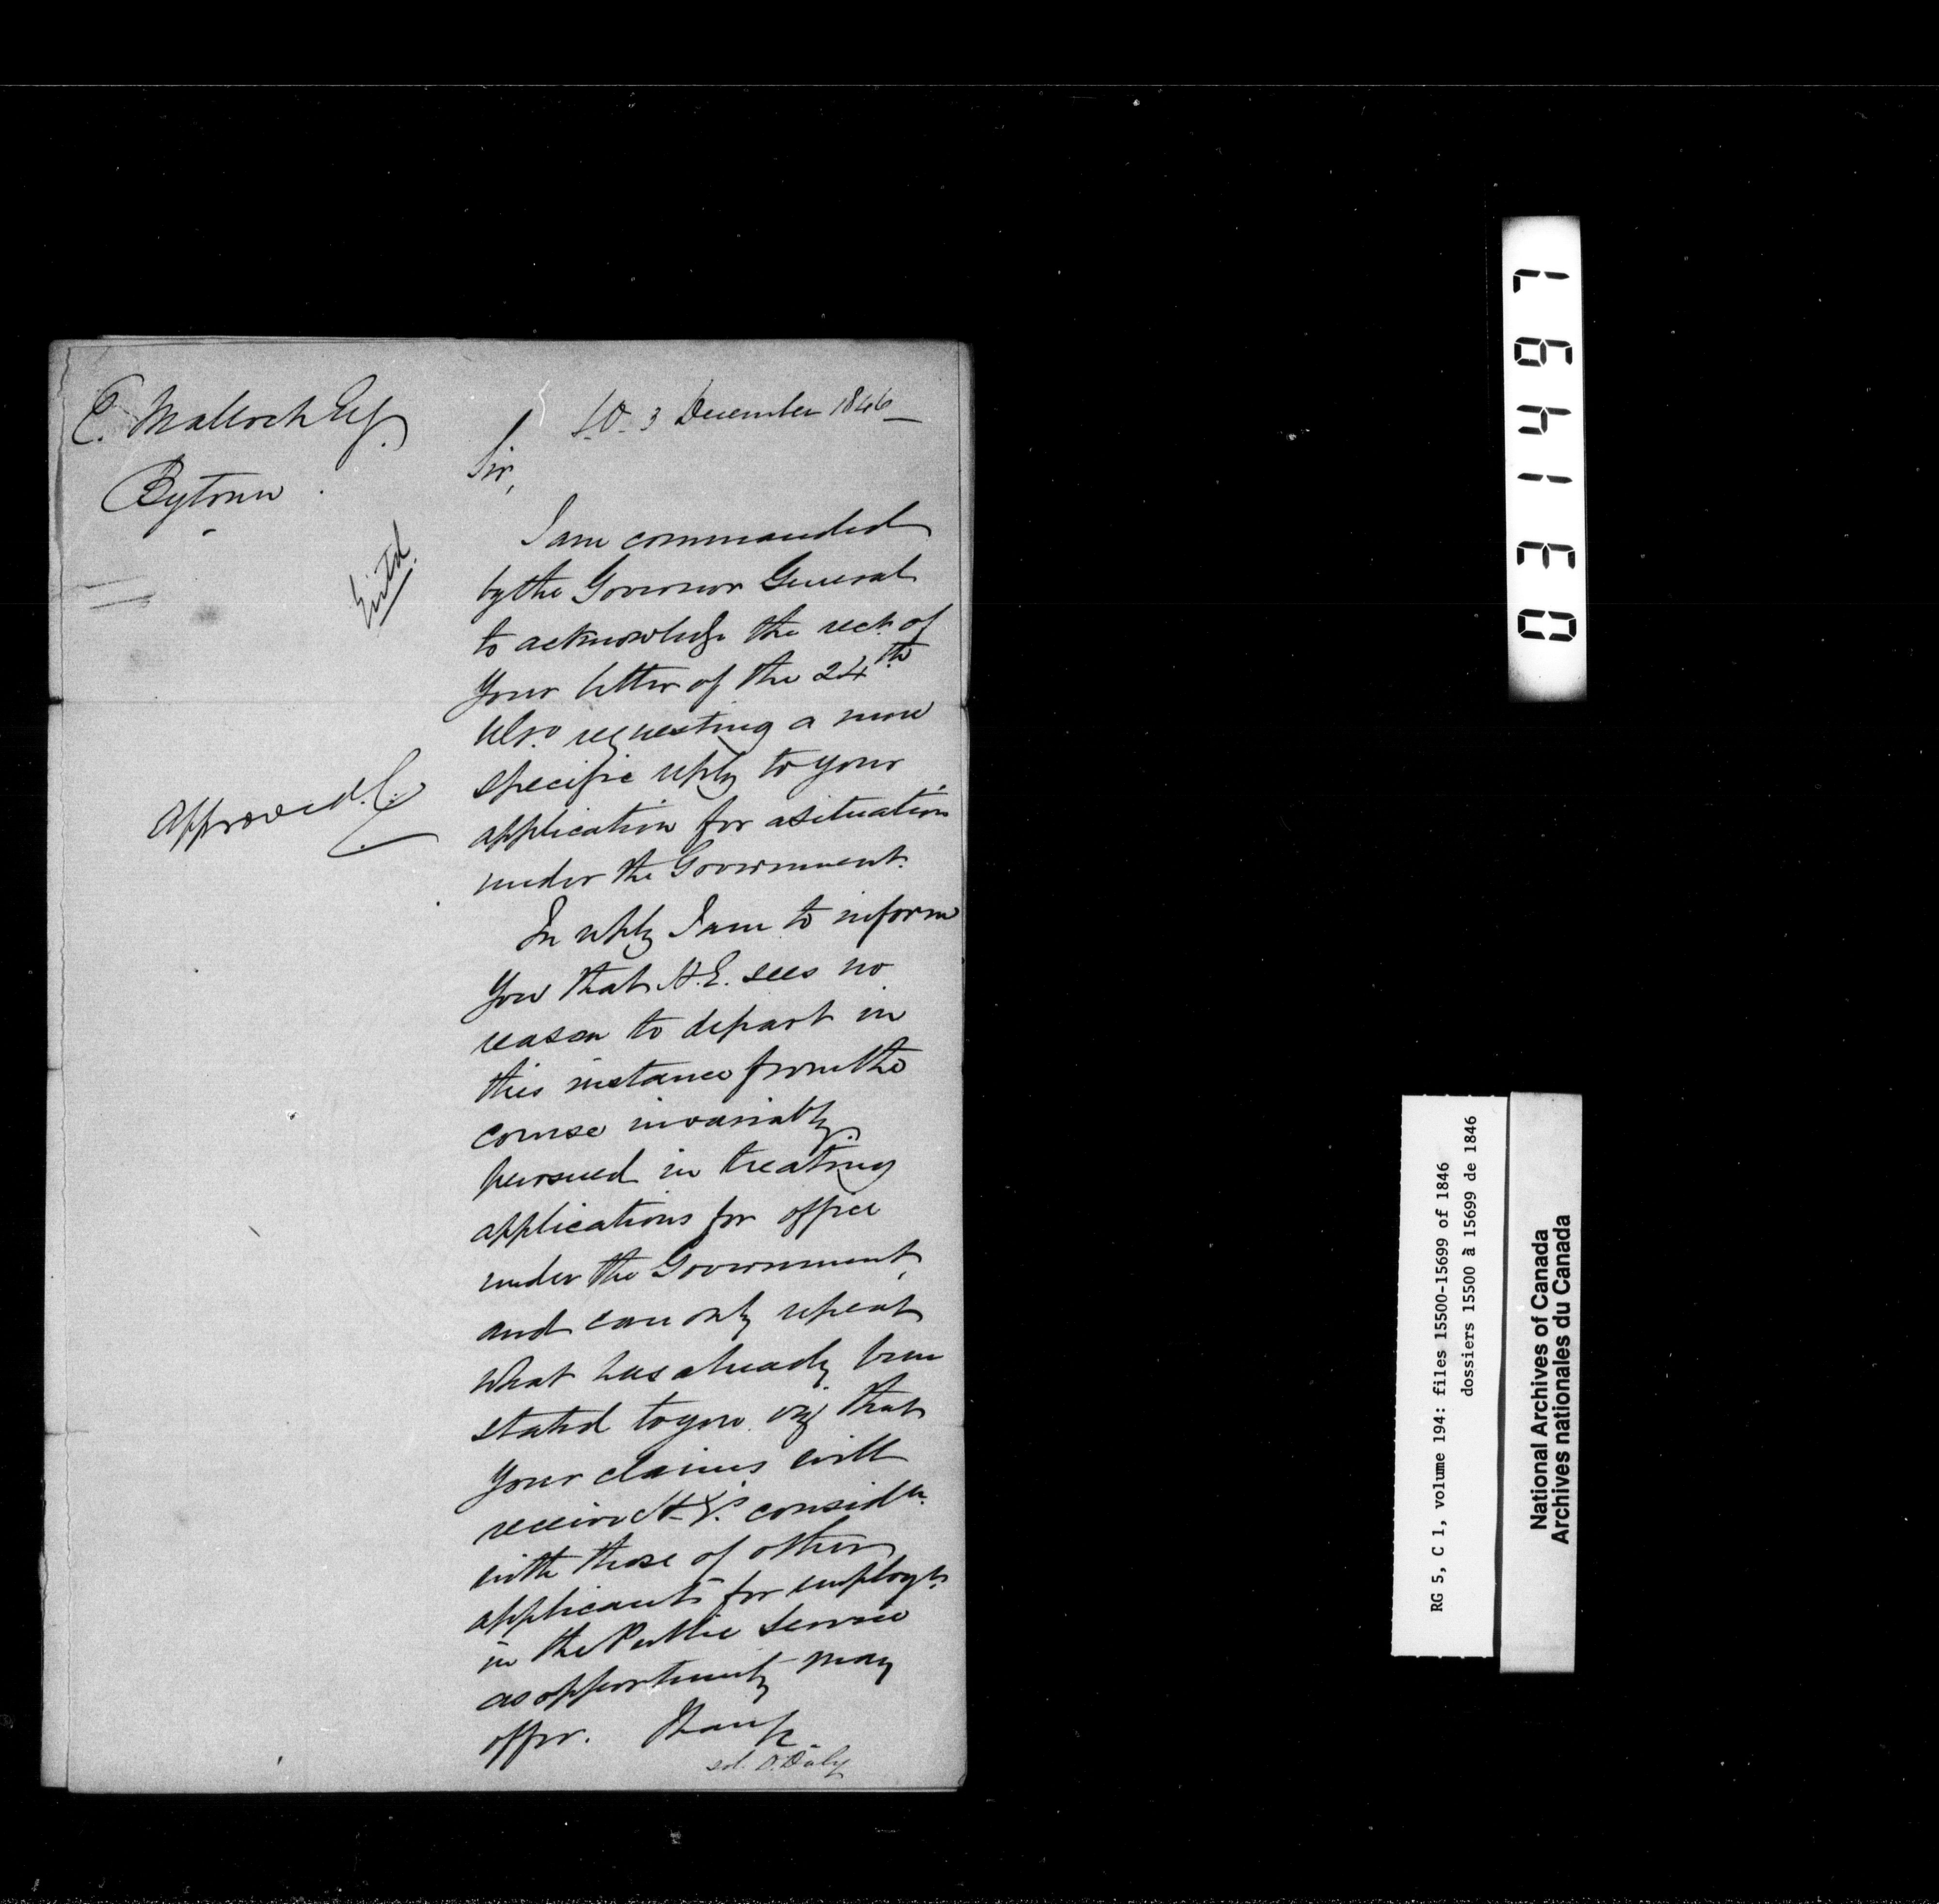 E. Malloch Esq.
Bytown
Entd.
Approved. C.
S.O. 3 December 1846
Sir,
I am commanded
by the Governor General
to acknowledge the rect. of
your letter of the 24th
ulto. requesting a more
specific reply to your
application for a situation
under the Government.
In reply I am to inform
you that H.E. sees no
reason to depart in
this instance from the
course invariably
pursued in treating
applications for office
under the Government,
and can only repeat
what has already been
stated to you viz that
your claims will
receive H.E's. considn.
with those of other
applicants for employt.
in the Public Service
as opportunity may
offer. I have &c
sd. D. Daly
031467
RG 5, C 1, volume 194: files 15500-15699 of 1846
dossiers 15500 à 15699 de 1846
National Archives of Canada
Archives nationales du Canada